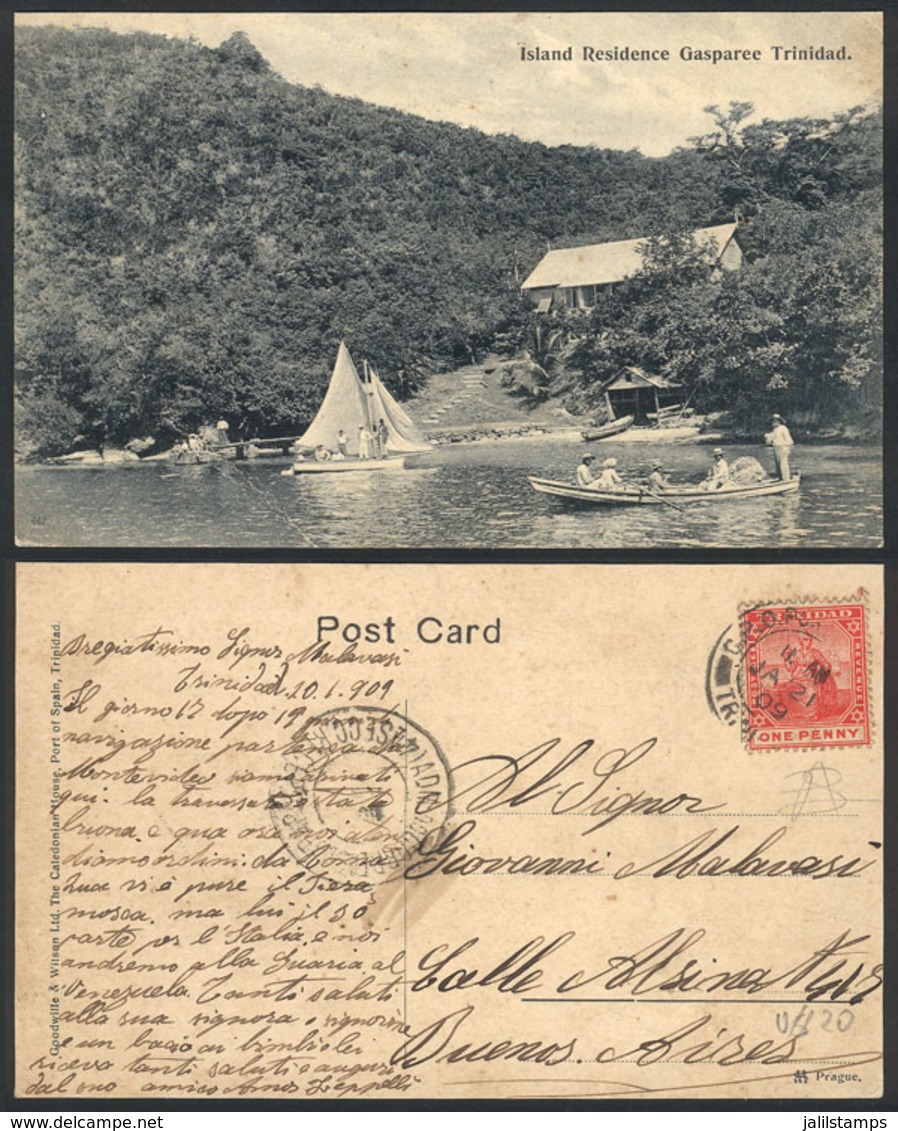 Island Residence Gasparee Trinidad.
Post Card
Goodwille & Wilson Ltd. The Caledonian House, Port of Spain, Trinidad.
Signor Malavasi
Trinidad, 20.1.909
Il giorno 17 dopo 19
navigazione partenza da
Montevideo siamo arrivati
qui. la traversata stata
buona, e qua ora noi
ordini da Roma
Qua vi è pure il Fiera
mosca, ma lui il 30
parte per l'Italia, e noi
andremo alla Guaria al
Venezuela. Tanti saluti
alla sua signora e signorine
e un bacio ai bimbi lei
riceva tanti saluti e auguri
dal suo amico Amos Zeppelli
G.P.O. P.
11 AM
JA 21
09
TRI
TRINIDAD
REVENUE
ONE PENNY
Al Signor
Giovanni Malavasi
Calle Alsina N
Buenos. Aires
20
Prague.
jalilstamps